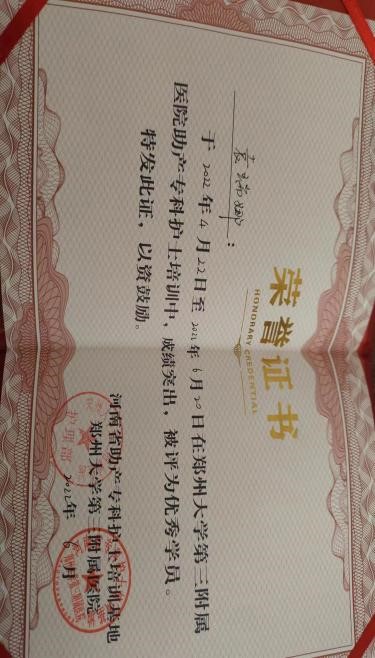 荣誉证书
HONORARY CREDENTIAL
袁瑞娜:
于2022年4月22日至2022年6月20日在郑州大学第三附属
医院助产专科护士培训中,成绩突出,被评为优秀学员。
特发此证,以资鼓励。
河南省助产专科护士培训基地
郑州大学第三附属医院
2022年6月
护理部